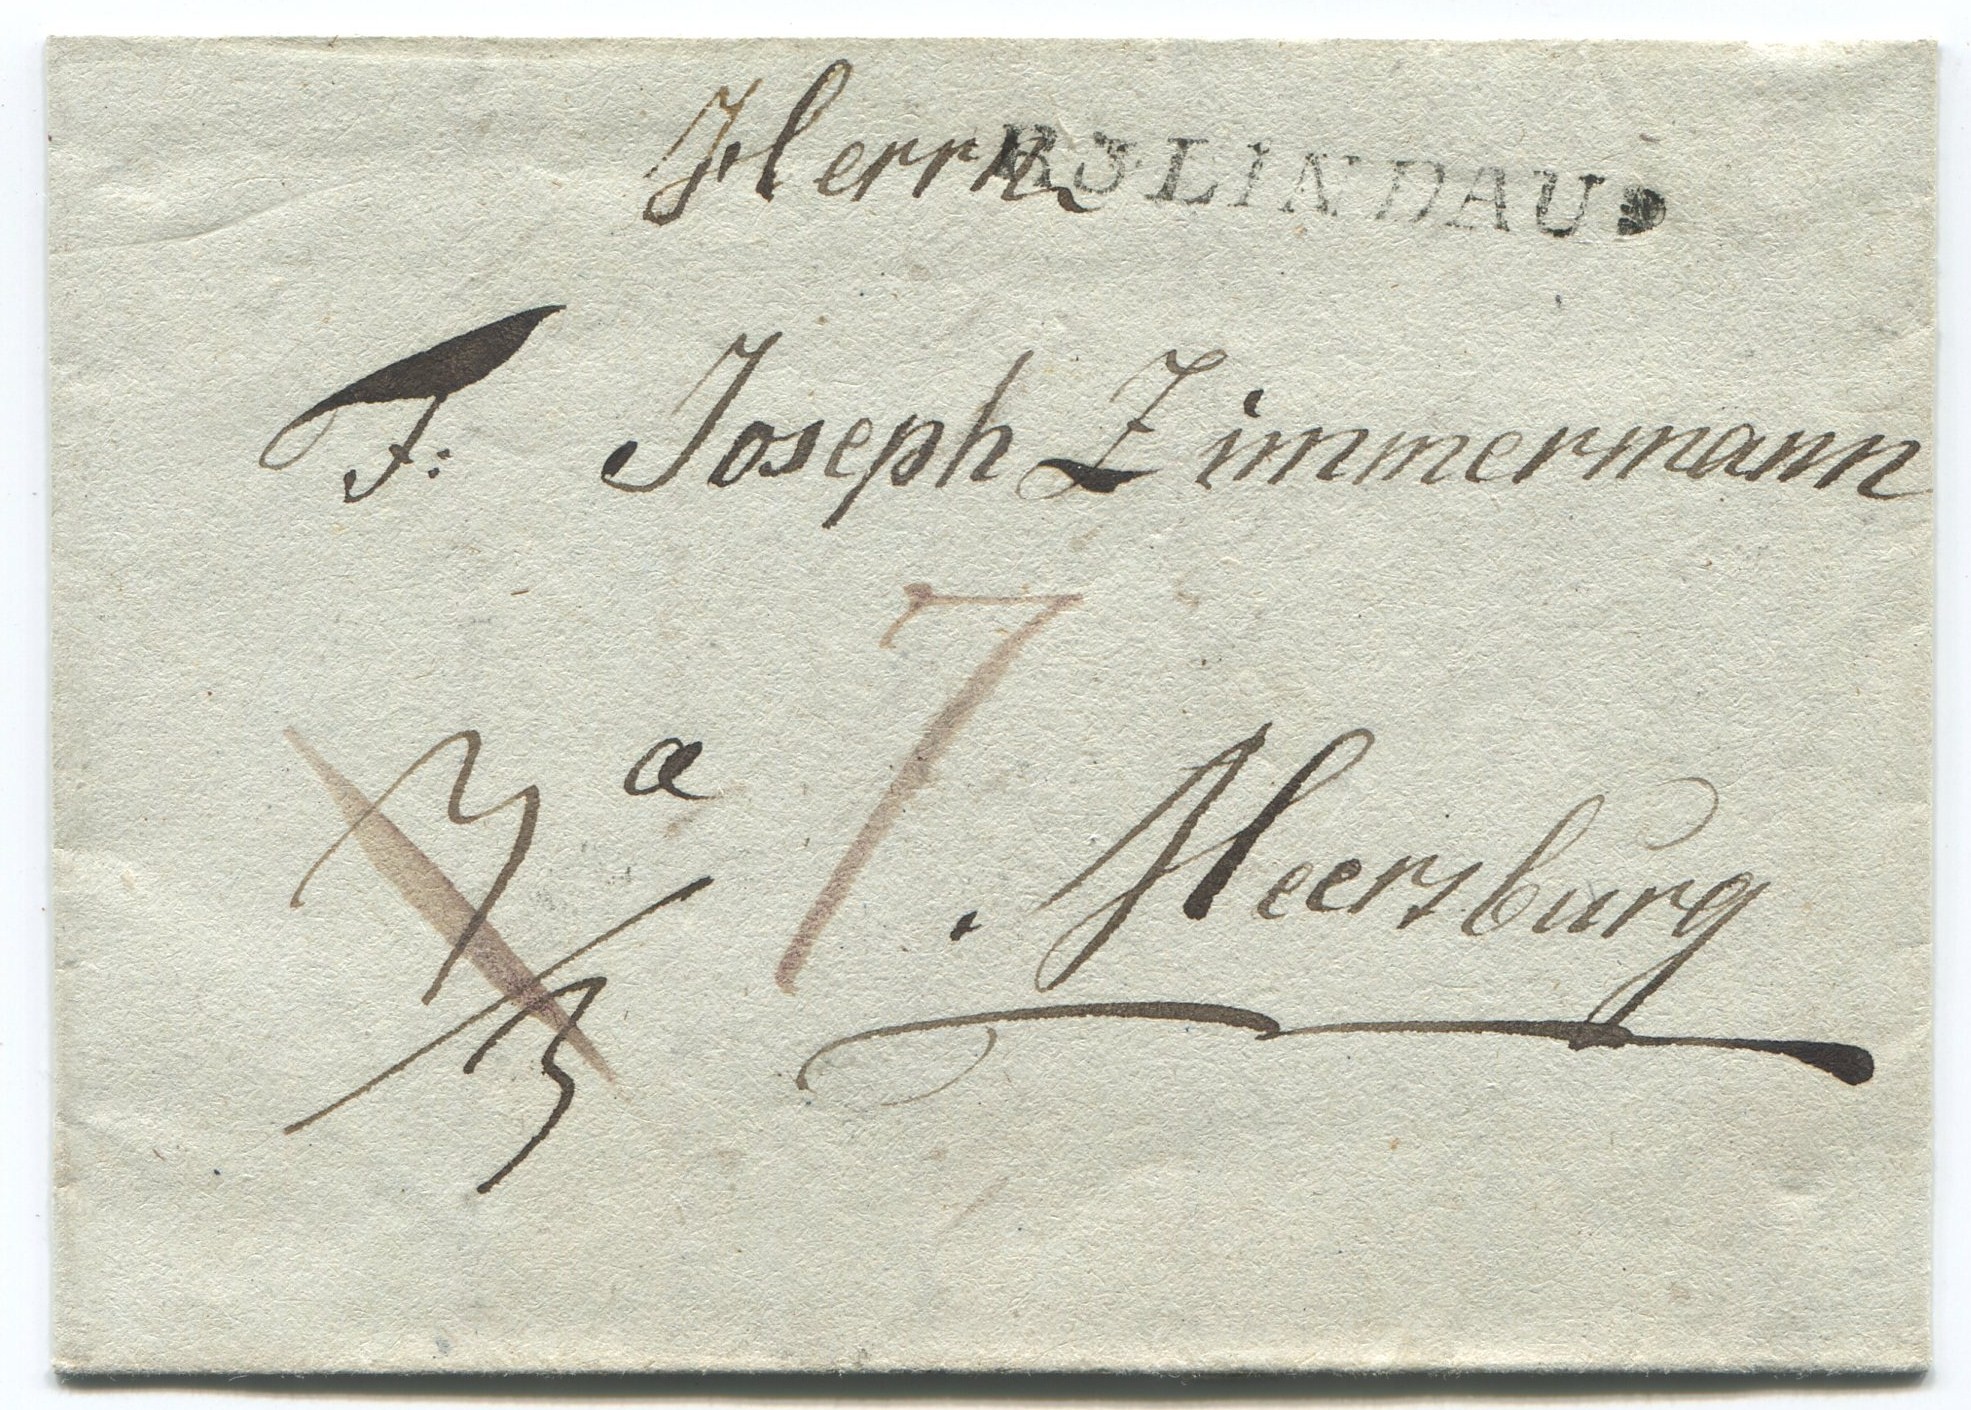 Herrn
R.3.LINDAU
F: Joseph Zimmermann
7
a Meersburg
3